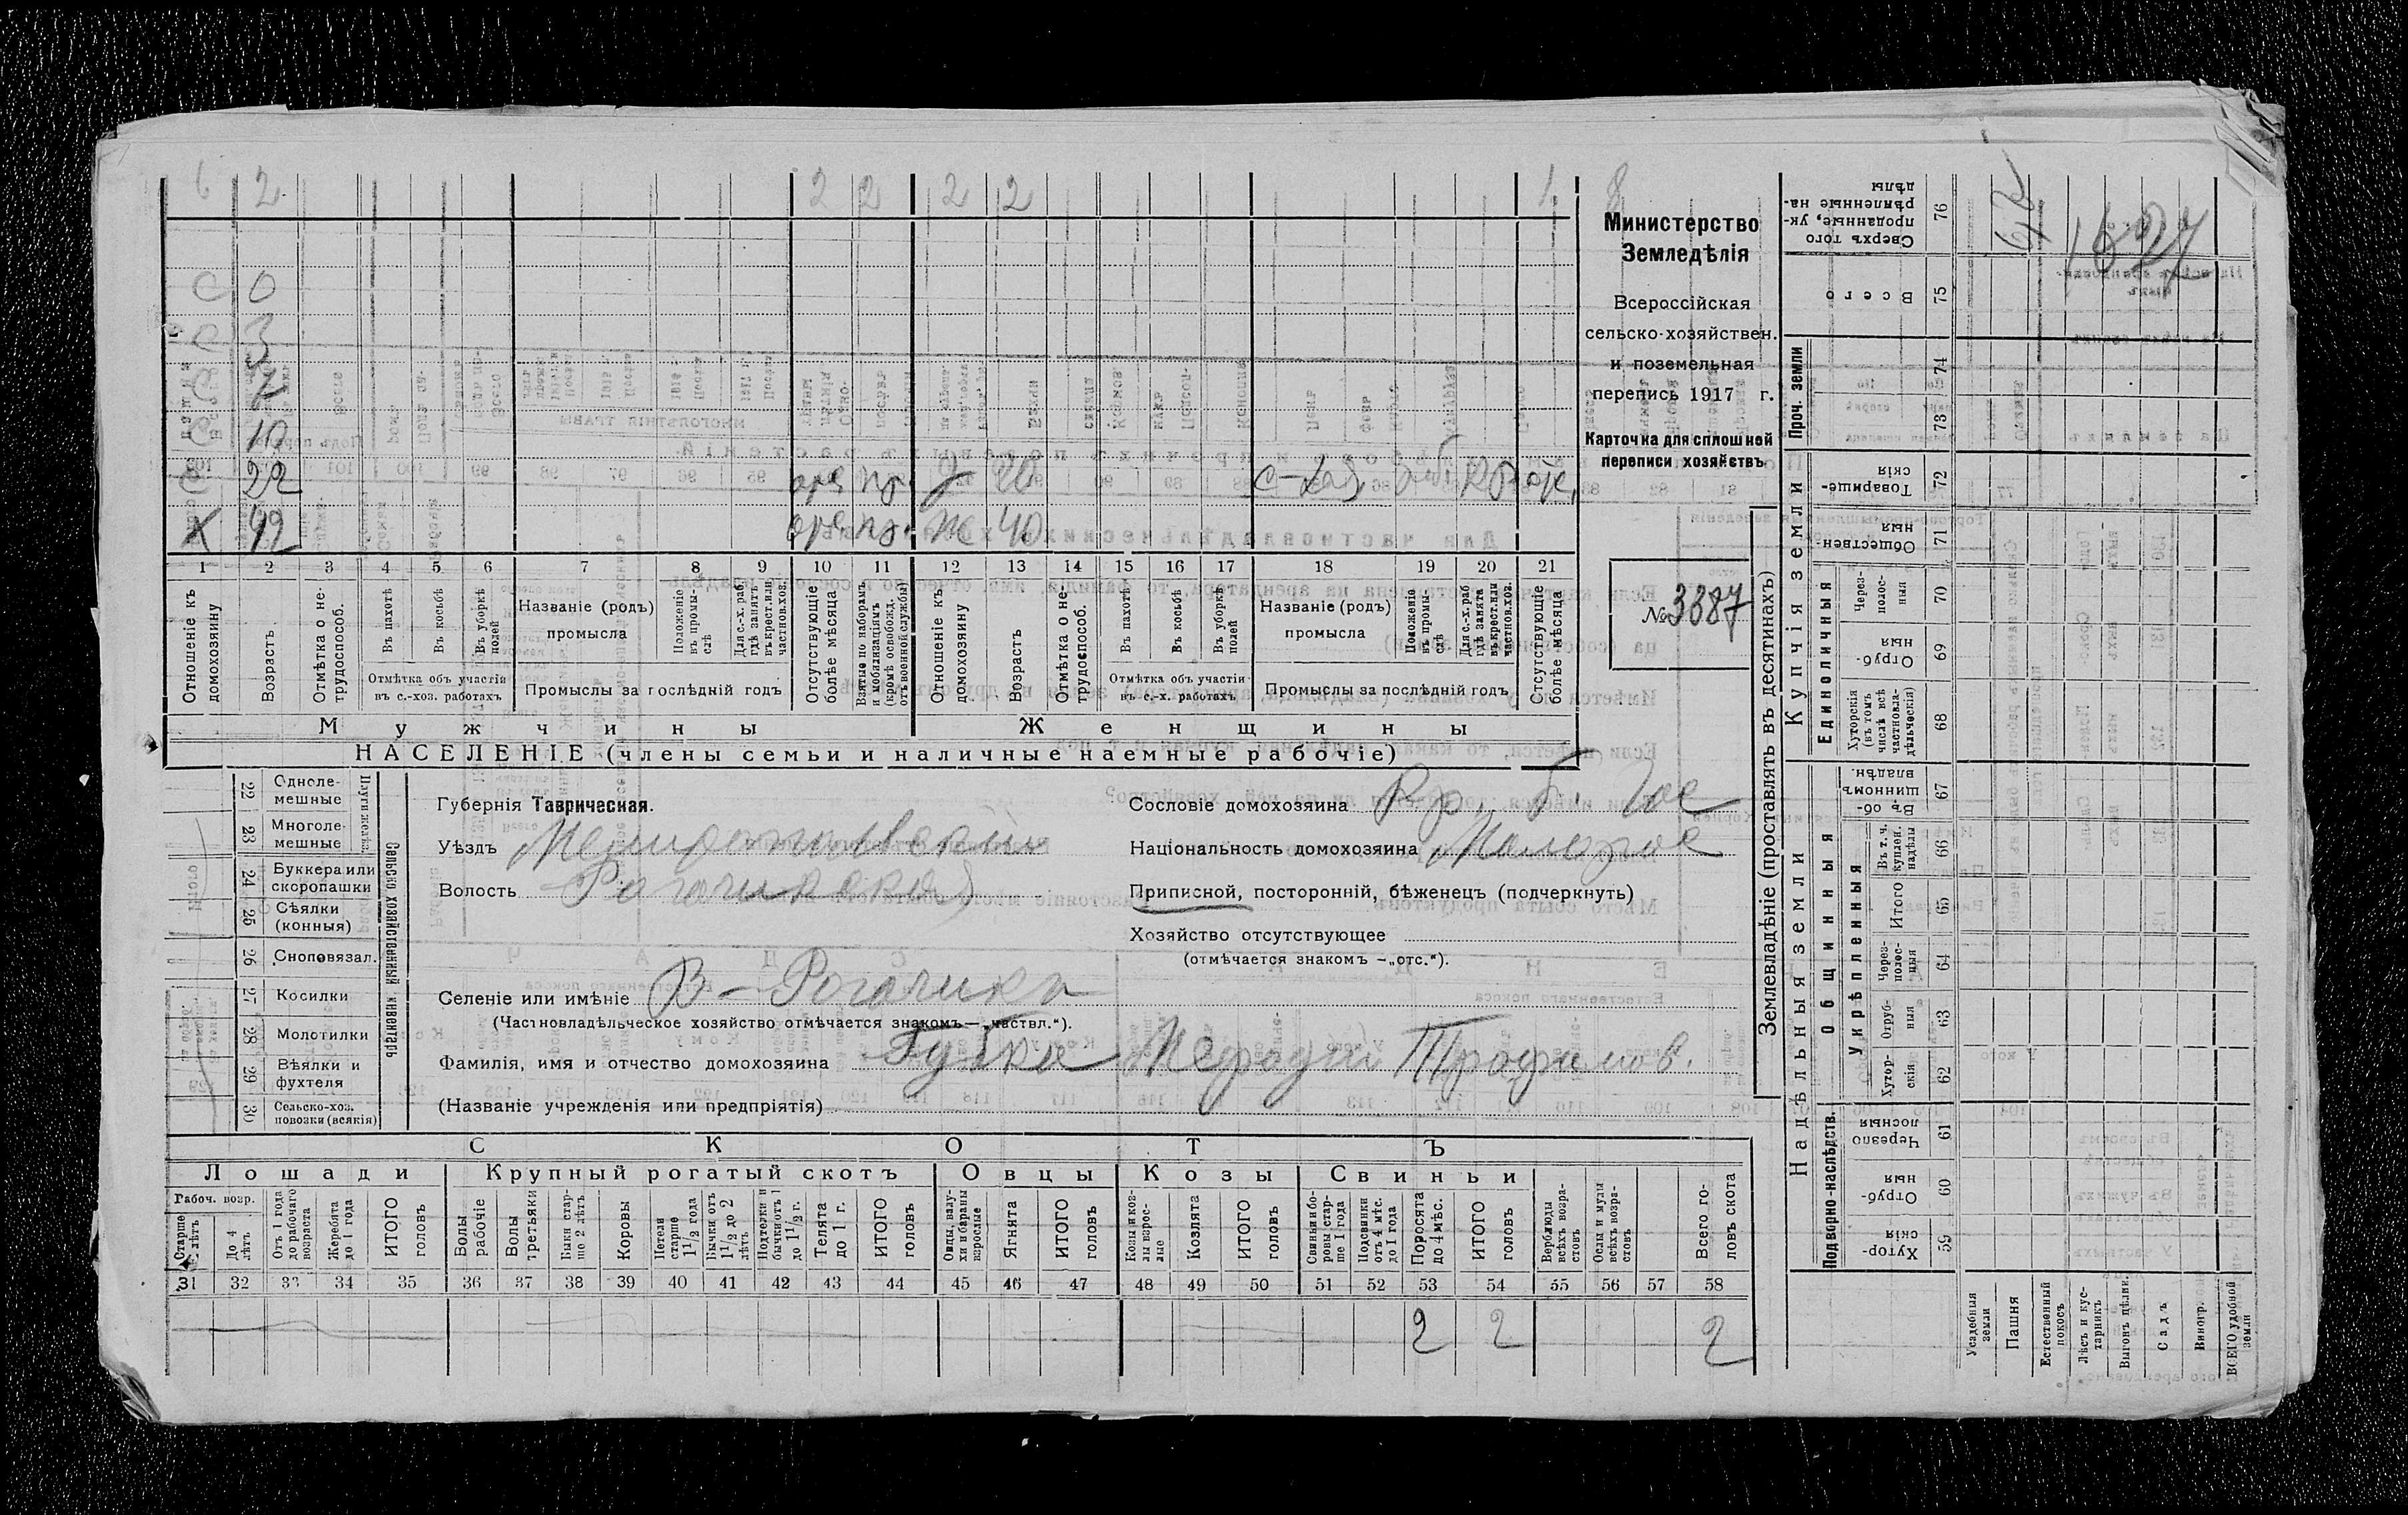 6 2 2 2 2 2 1 8
С 0
С 3
С 7
С 10
С 22 арм. пр. д 20
Х 42 арм. пр. Ж 40
1 2 3 4 5 6 7 8 9 10 11 12 13 14 15 16 17 18 19 20 21
Отношеніе къ домохозяину
Возрастъ
Отмѣтка о не-трудоспособ.
Въ пахотѣ
Въ косьбѣ
Въ уборкѣ полей
Отмѣтка объ участіи въ с.-хоз. работахъ
Названіе (родъ) промысла
Положеніе въ промы-слѣ
Для с.-х. раб. гдѣ занятъ въ крест. или частнов. хоз.
Промыслы за послѣдній годъ
Отсутствующіе болѣе мѣсяца
Взятые по наборамъ и мобилизаціямъ (кромѣ освобожд. отъ военной службы)
Отношеніе къ домохозяину
Возрастъ
Отмѣтка о не-трудоспособ.
Въ пахотѣ
Въ косьбѣ
Въ уборкѣ полей
Отмѣтка объ участіи въ с.-х. работахъ
Названіе (родъ) промысла
Положеніе въ промы-слѣ
Для с.-х. раб. гдѣ занята въ крест. или частнов. хоз.
Промыслы за послѣдній годъ
Отсутствующіе болѣе мѣсяца
Мужчины Женщины
НАСЕЛЕНІЕ (члены семьи и наличные наемные рабочіе)
Министерство
Земледѣлія
Всероссійская
сельско-хозяйствен.
и поземельная
перепись 1917 г.
Карточка для сплошной
переписи хозяйствъ
№ 3887
22 Одноле-мешные
23 Многоле-мешные
Плуги желѣз.
24 Буккера или скоропашки
25 Сѣялки (конныя)
26 Сноповязал.
27 Косилки
28 Молотилки
29 Вѣялки и фухтеля
30 Сельско-хоз. повозки (всякія)
Сельско хозяйственный инвентарь
Губернія Таврическая.
Уѣздъ Мелитопольскій
Волость Рогачикская
Селеніе или имѣніе В-Рогачикъ
(Частновладѣльческое хозяйство отмѣчается знакомъ—„частвл.“).
Фамилія, имя и отчество домохозяина Губка Мефодій Трофимов.
(Названіе учрежденія или предпріятія)
Сословіе домохозяина Кр.
Національность домохозяина Малорос
Приписной, посторонній, бѣженецъ (подчеркнуть)
Хозяйство отсутствующее
(отмѣчается знакомъ —„отс.“).
СКОТЪ
Лошади Крупный рогатый скотъ Овцы Козы Свиньи
Рабоч. возр.
Старше 4 лѣтъ
До 4 лѣтъ
Отъ 1 года до рабочаго возраста
Жеребята до 1 года
ИТОГО головъ
Волы рабочіе
Волы третьяки
Быки стар-ше 2 лѣтъ
Коровы
Нетели старше 1 1/2 года
Бычки отъ 1 1/2 до 2 лѣтъ
Подтелки и бычки отъ 1 до 1 1/2 г.
Телята до 1 г.
ИТОГО головъ
Овцы, валу-хи и бараны взрослые
Ягнята
ИТОГО головъ
Козы и коз-лы взрос-лые
Козлята
ИТОГО головъ
Свиньи и бо-ровы стар-ше 1 года
Подсвинки отъ 4 мѣс. до 1 года
Поросята до 4 мѣс.
ИТОГО головъ
Верблюды всѣхъ возра-стовъ
Ослы и мулы всѣхъ возра-стовъ
Всего го-ловъ скота
31 32 33 34 35 36 37 38 39 40 41 42 43 44 45 46 47 48 49 50 51 52 53 54 55 56 57 58
2 2 2
Землевладѣніе (проставлять въ десятинахъ)
Надѣльныя земли Купчія земли Проч. земли
Подворно-наслѣдств.
Общинныя
Укрѣпленныя
Единоличныя
Хутор-скія 59
Отруб-ныя 60
Черезпо лосныя 61
Хутор-скія 62
Отруб-ныя 63
Через-полос-ныя 64
Итого 65
Въ т. ч. куплен. надѣлы 66
Въ об-щинномъ владѣн. 67
Хуторскія (въ томъ числѣ всѣ частновла-дѣльческія) 68
Отруб-ныя 69
Через-полос-ныя 70
Обществен-ныя 71
Товарище-скія 72
73 74
Всего 75
Сверхъ того проданные, ук-рѣпленные на-дѣлы 76
1627
Усадебныя земли
Пашня
Естественный покосъ
Лѣсъ и кус-тарникъ
Выгонъ цѣлин.
Садъ
Виногр.
ВСЕГО удобной земли